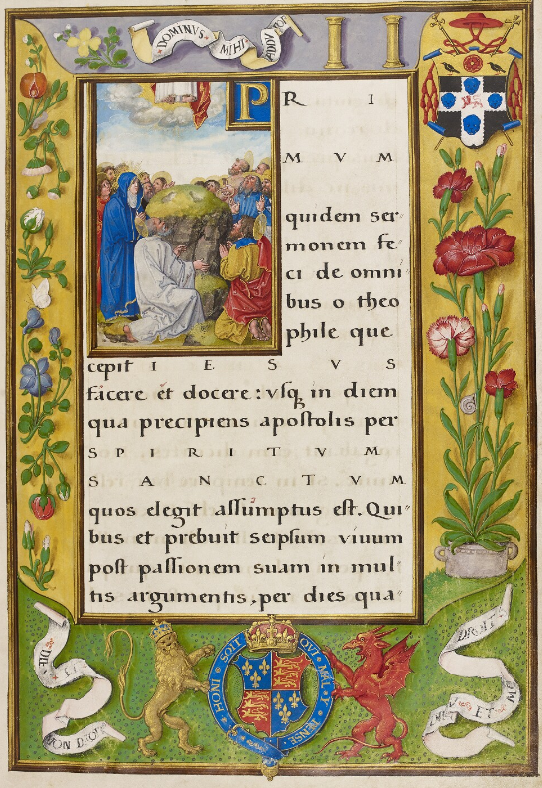 DOMINVS MIHI ADIVTOR
P R I
M V M
quidem ser
monem fe
ci de omni
bus o theo
phile que
cepit I E S V S
facere et docere: vsq in diem
qua precipiens apostolis per
S P I R I T V M
S A N C T V M
quos elegit assumptus est. Qui
bus et prebuit seipsum viuum
post passionem suam in mul
tis argumentis, per dies qua
HONI SOIT QVI MAL Y PENSE
DIEV ET
MON DROIT
DIEV ET MON
DROIT